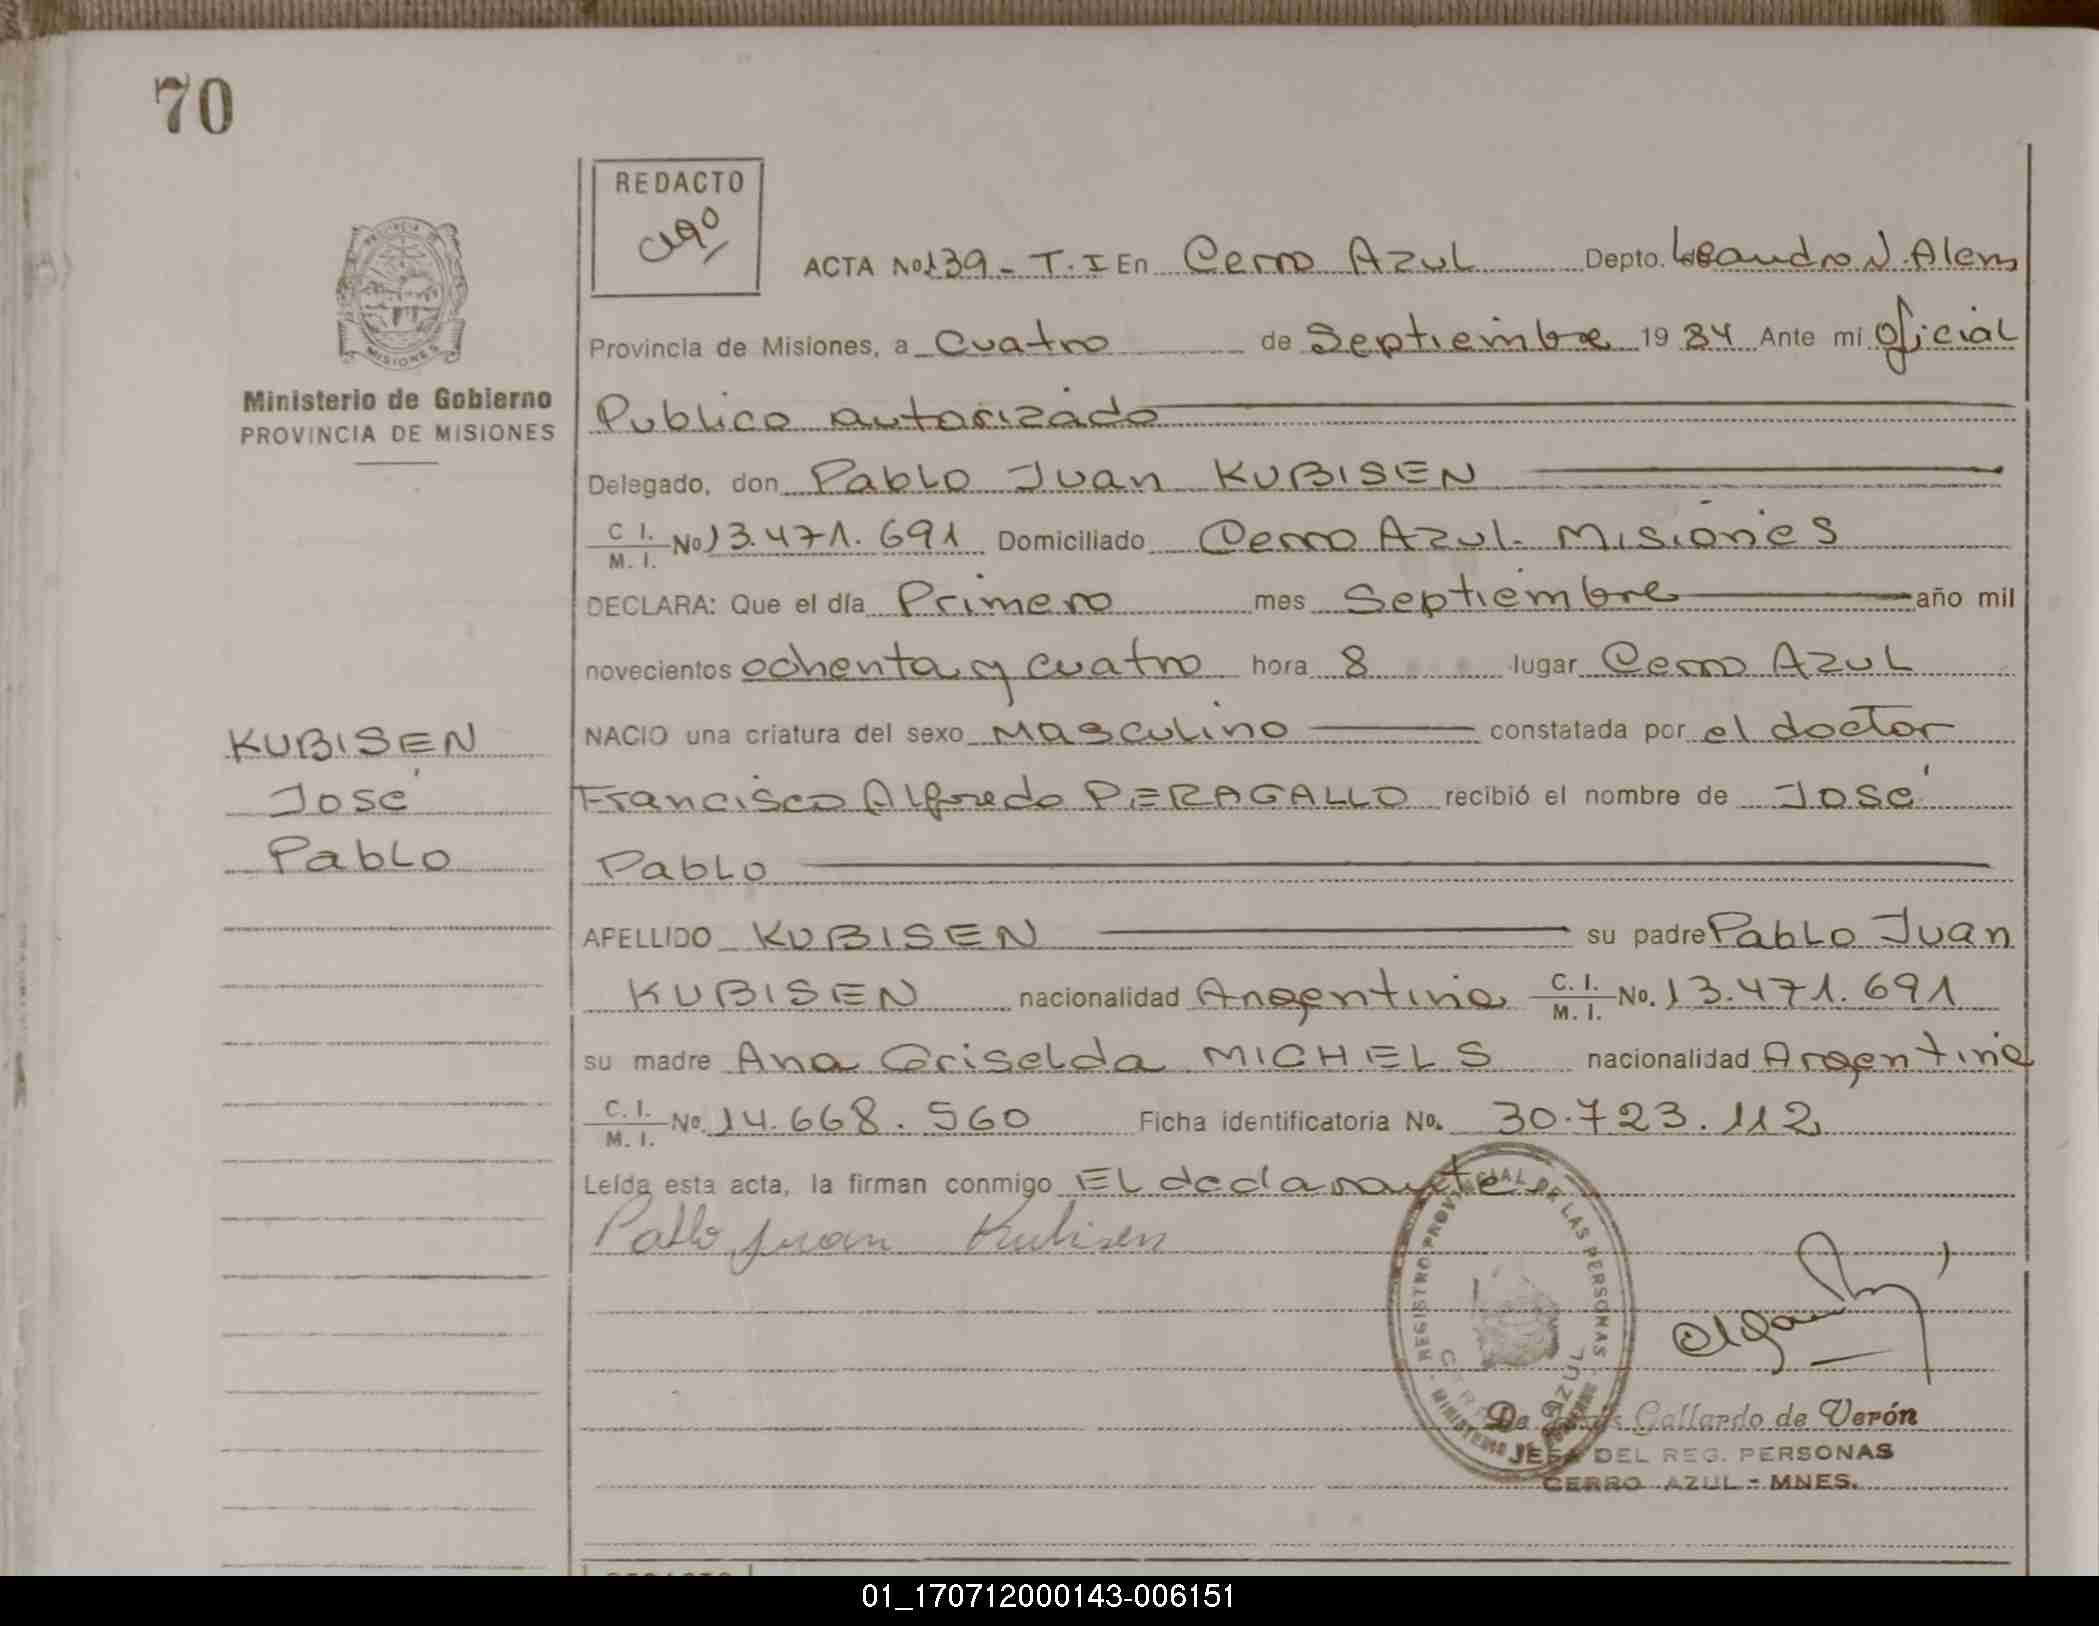 70
REDACTO
ACTA No 139 - T. I En Cerro Azul Depto. Leandro N. Alem
Provincia de Misiones, a Cuatro de Septiembre 19 84 Ante mi Oficial
Publico autorizado
Delegado, don Pablo Juan KUBISEN
C. I. / M. I. No 13.471.691 Domiciliado Cerro Azul - Misiones
DECLARA: Que el día Primero mes Septiembre año mil
novecientos ochenta y cuatro hora 8 lugar Cerro Azul
NACIO una criatura del sexo Masculino constatada por el doctor
Francisco Alfredo PERAGALLO recibió el nombre de José
Pablo
APELLIDO KUBISEN su padre Pablo Juan
KUBISEN nacionalidad Argentina C. I. / M. I. No. 13.471.691
su madre Ana Griselda MICHELS nacionalidad Argentina
C. I. / M. I. No. 14.668.560 Ficha identificatoria No. 30.723.112
Leída esta acta, la firman conmigo EL declarante
Pablo Juan Kubisen
PROVINCIA DE
MISIONES
Ministerio de Gobierno
PROVINCIA DE MISIONES
KUBISEN
José
Pablo
REGISTRO PROVINCIAL DE LAS PERSONAS
MINISTERIO DE GOBIERNO
CERRO AZUL
Gallardo de Verón
JEFA DEL REG. PERSONAS
CERRO AZUL - MNES.
01_170712000143-006151